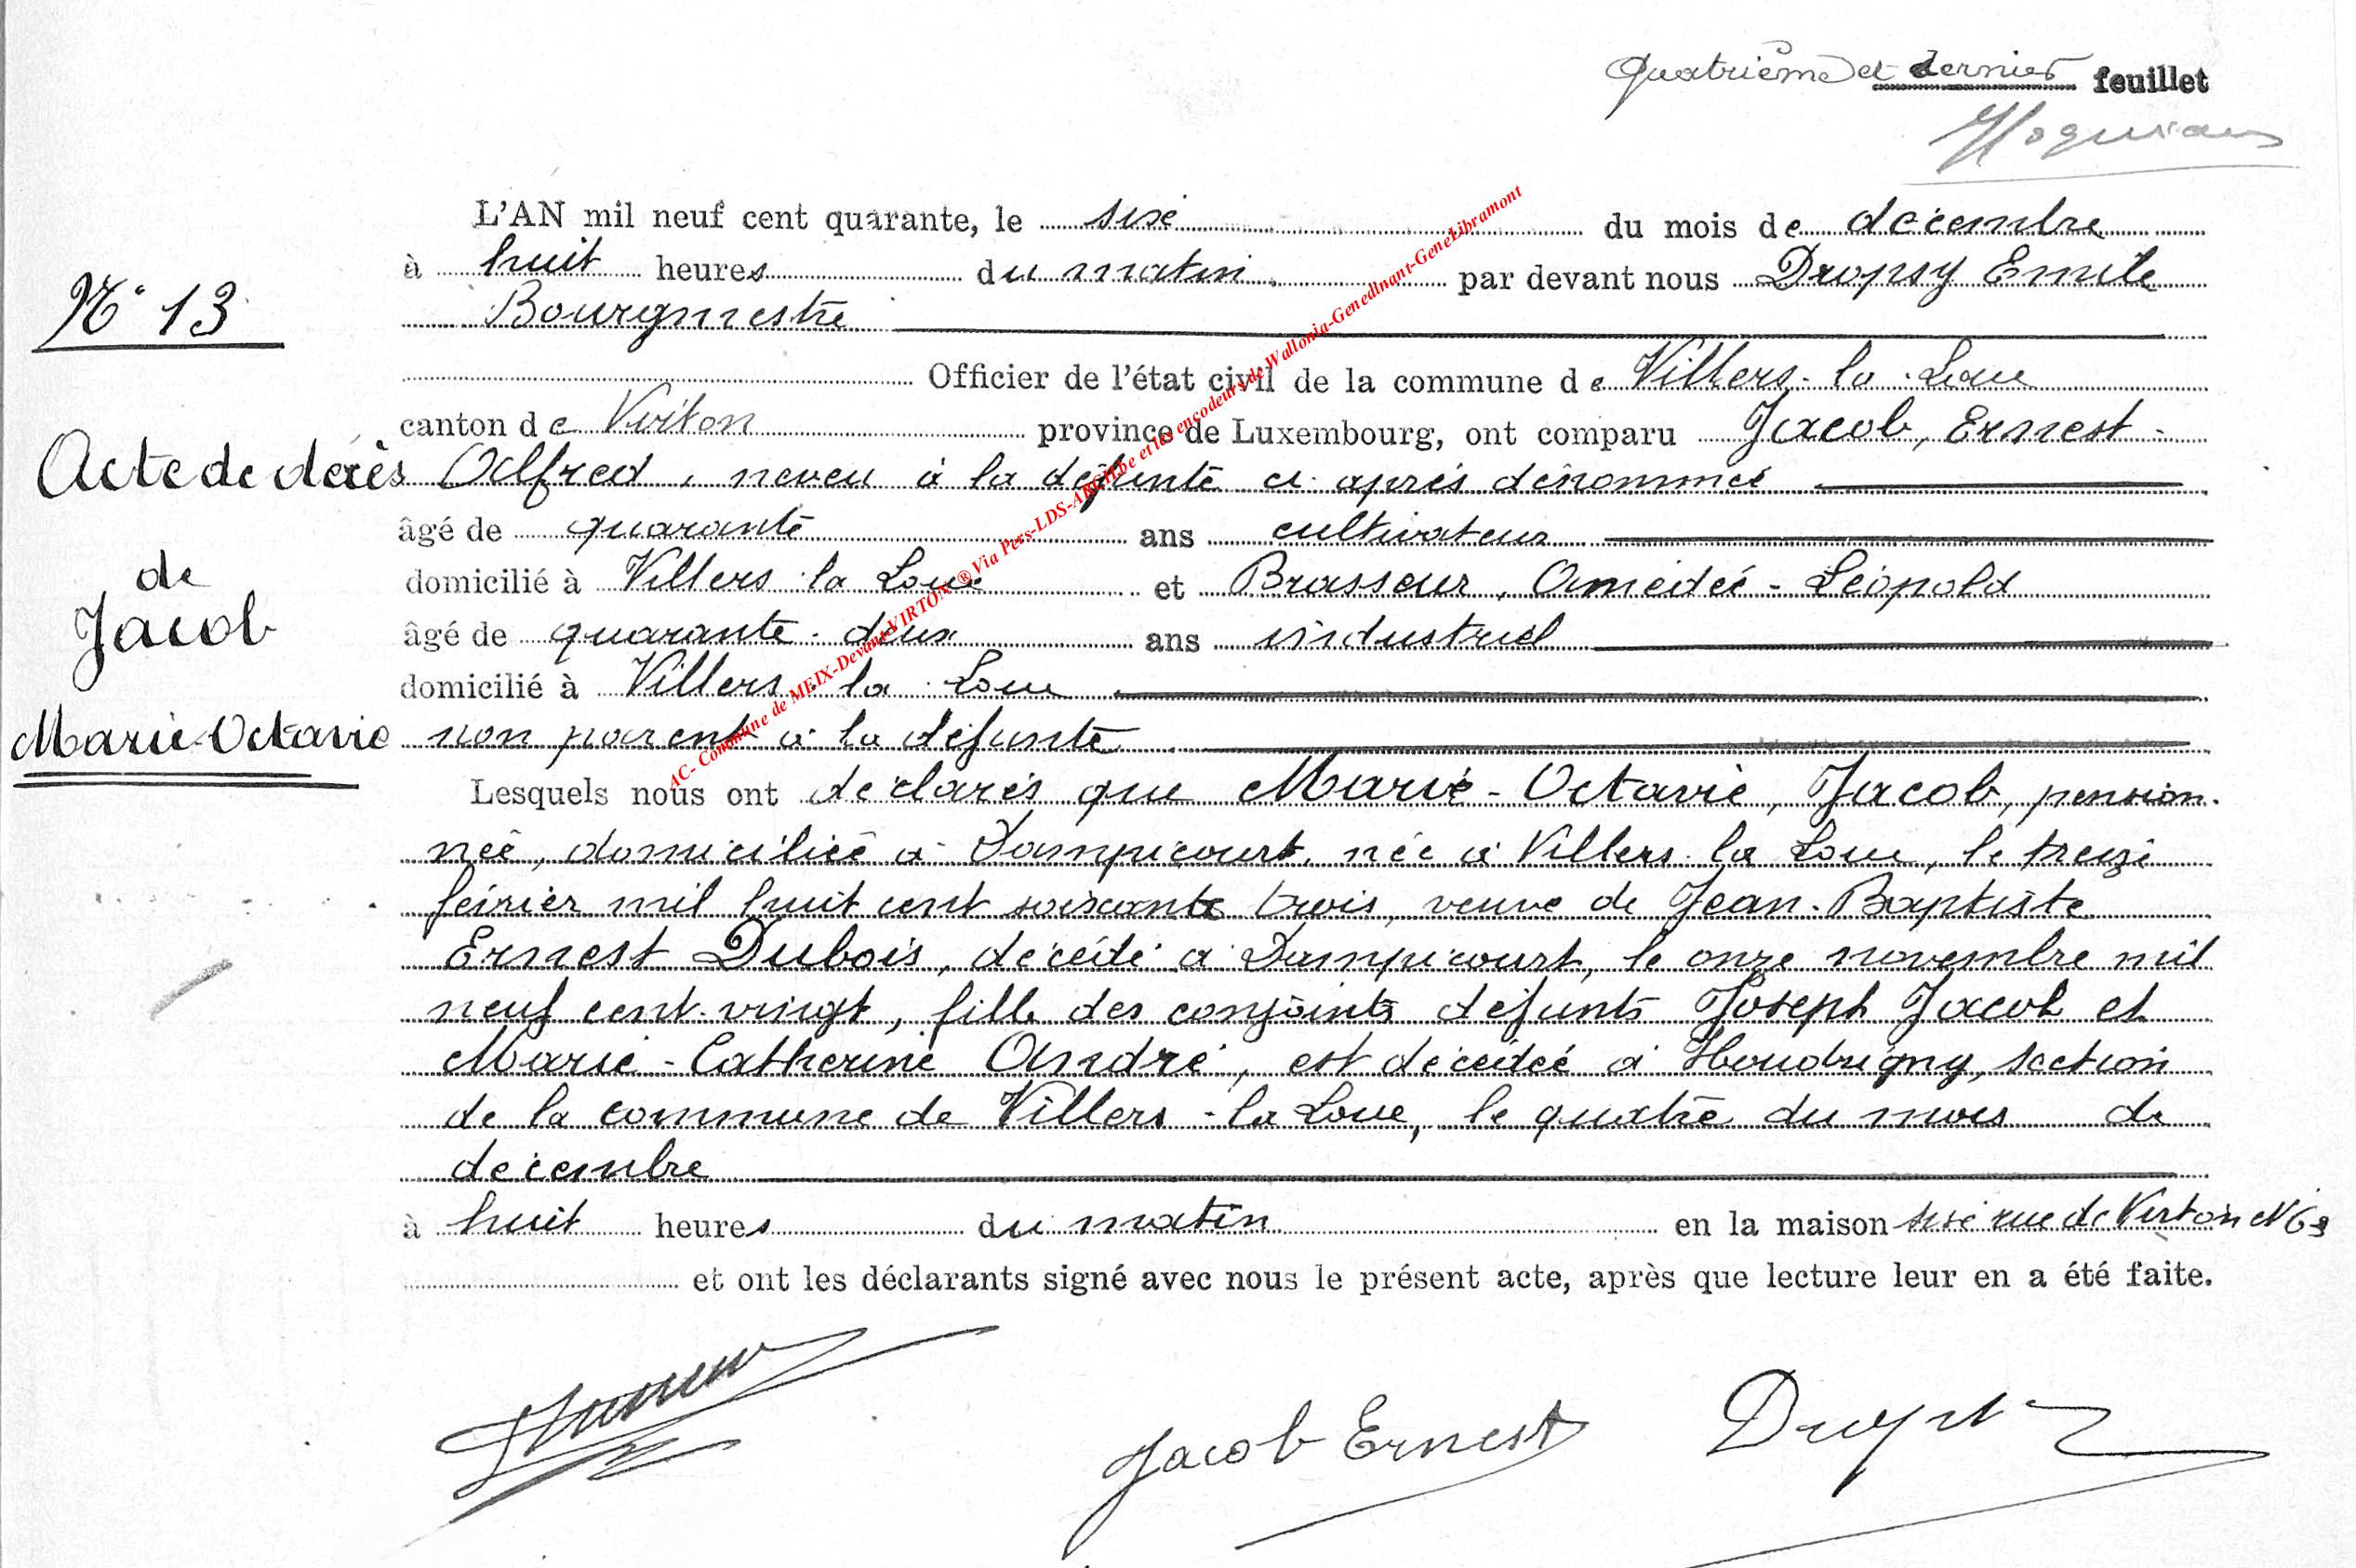 Quatrième et dernier feuillet
L'AN mil neuf cent quarante, le six du mois de décembre
à huit heures du matin, par devant nous Dropsy Emile
Bourgmestre
N° 13
Officier de l'état civil de la commune de Villers-la-Loue
canton de Virton province de Luxembourg, ont comparu Jacob, Ernest-
Acte de décès
Alfred, neveu à la défunte ci-après dénommée
âgé de quarante ans cultivateur
de
domicilié à Villers-la-Loue et Brasseur, Amédée-Léopold
Jacob
âgé de quarante-deux ans industriel
domicilié à Villers-la-Loue
Marie-Octavie
non parent à la défunte
Lesquels nous ont déclarés que Marie-Octavie, Jacob, pension-
née, domiciliée à Dampicourt, née à Villers-la-Loue, le treize
février mil huit cent soixante trois, veuve de Jean-Baptiste
Ernest Dubois, décédé à Dampicourt, le onze novembre mil
neuf cent-vingt, fille des conjoints défunts Joseph Jacob et
Marie-Catherine André, est décédée à Houdrigny, section
de la commune de Villers-la-Loue, le quatre du mois de
décembre
à huit heures du matin en la maison sise rue de Virton N°
et ont les déclarants signé avec nous le présent acte, après que lecture leur en a été faite.
Jacob Ernest
Dropsy
AC- Commune de MEIX-Devant-VIRTON ® Via Pers-LDS-ARCH.be et les encodeurs de Wallonia-Genedinant-GeneLibramont